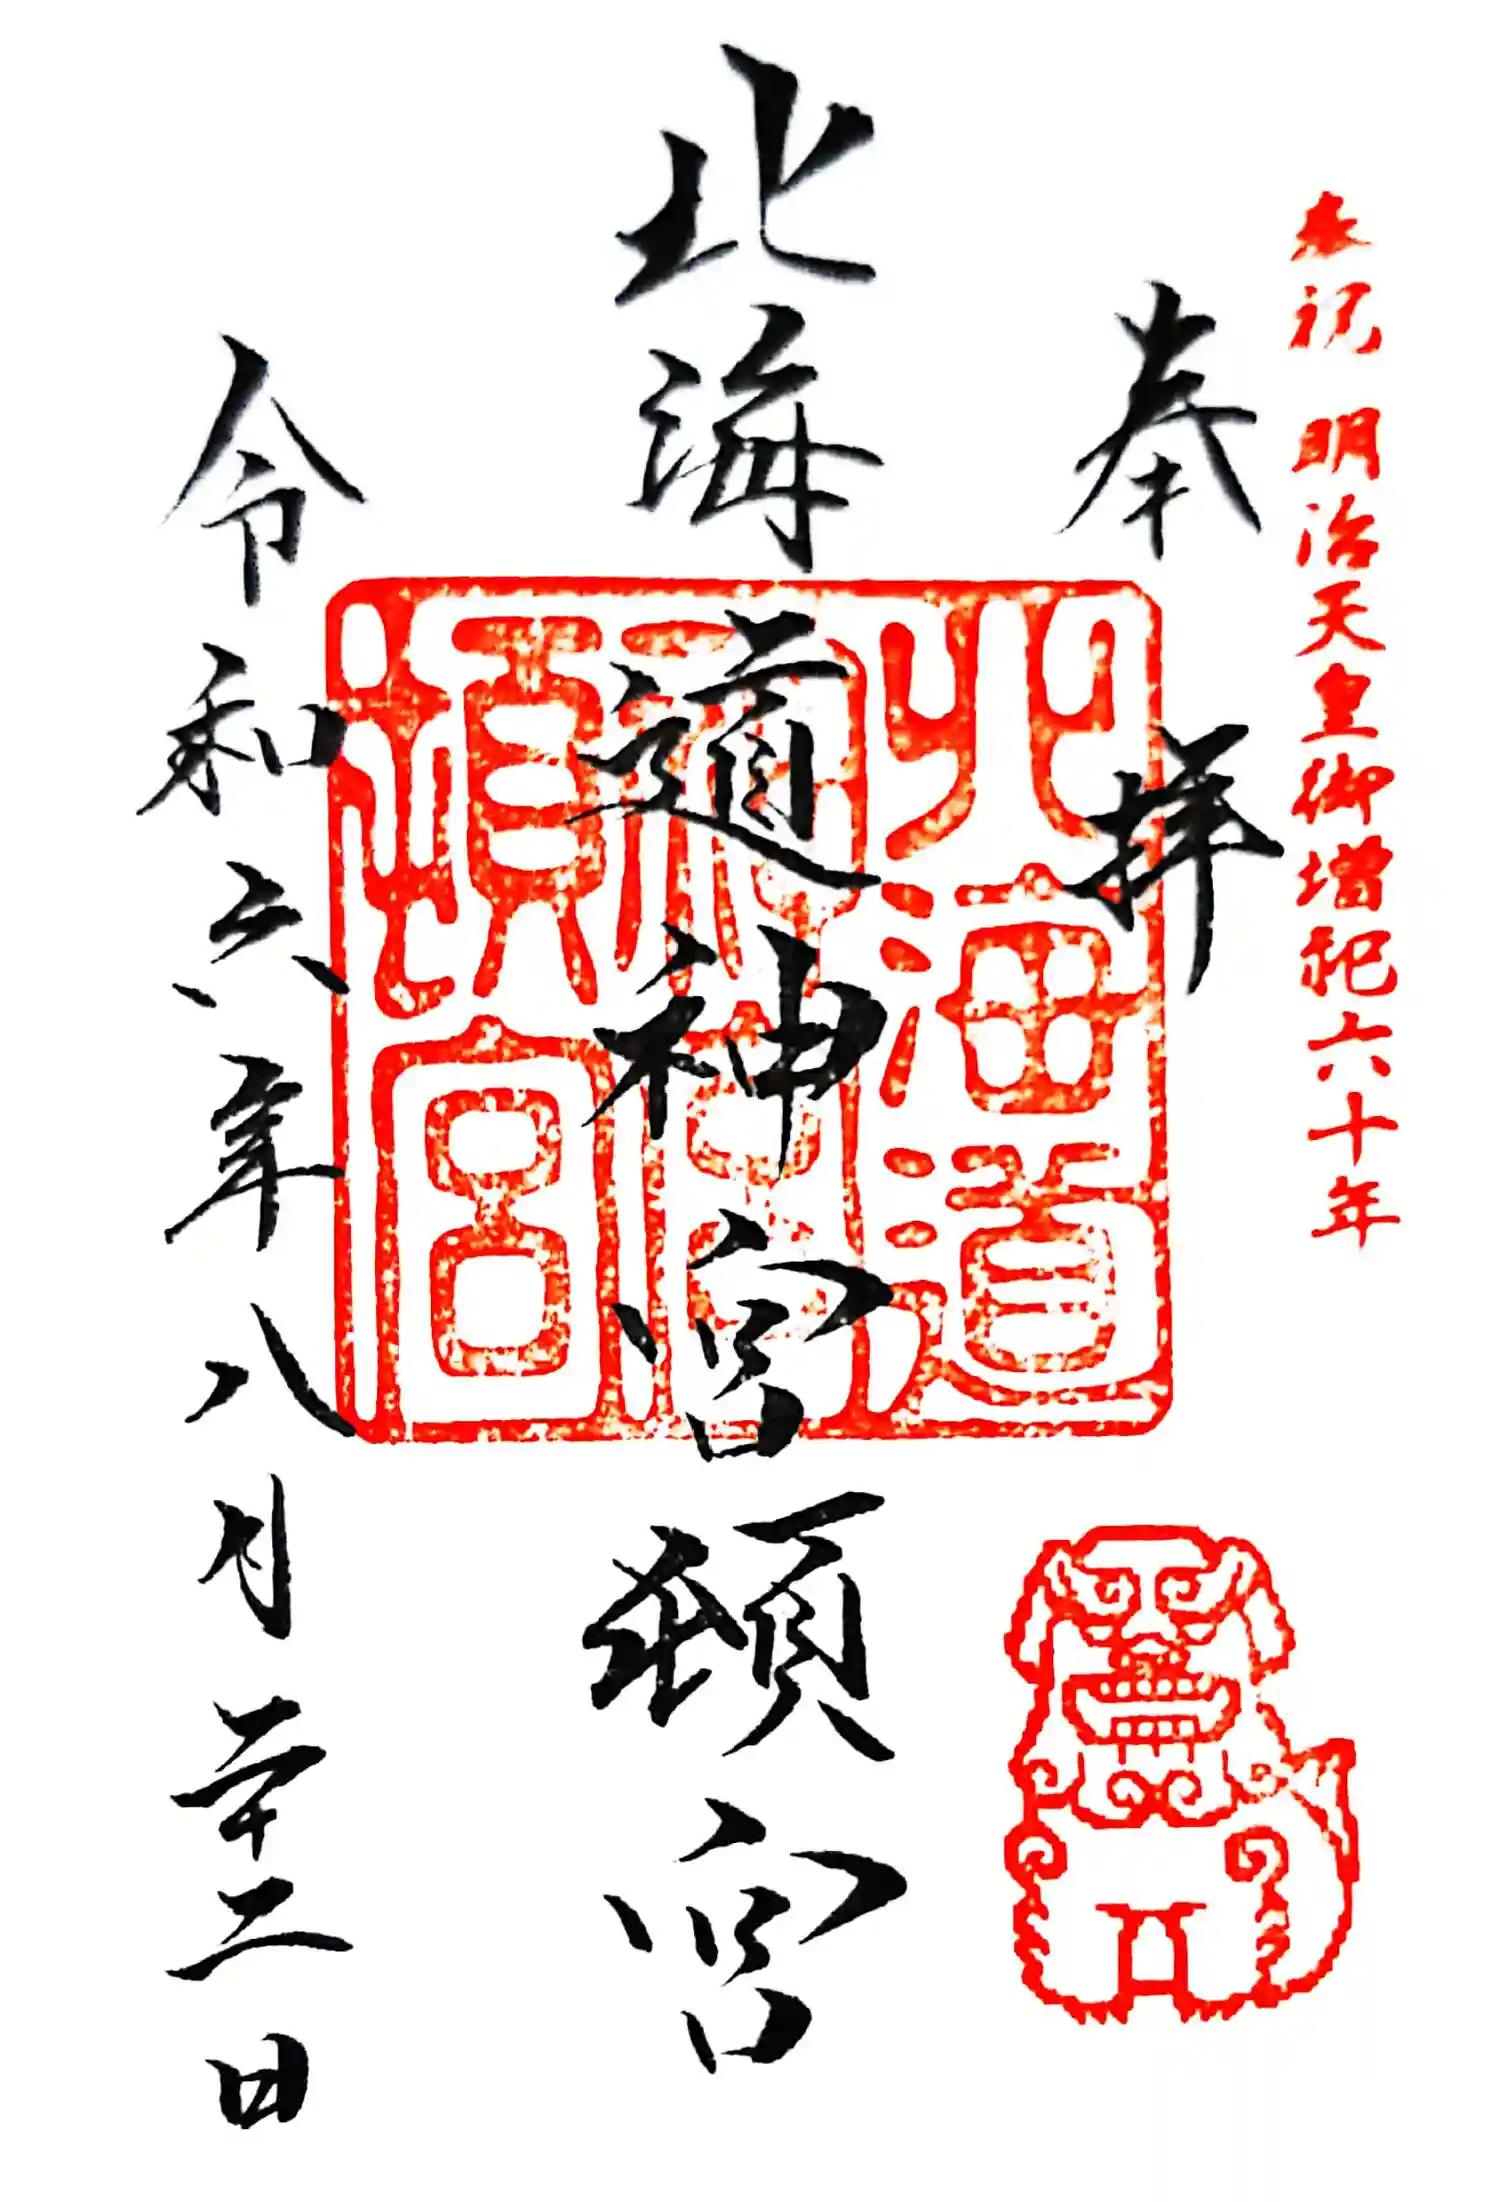 奉祝 明治天皇御増祀六十年
奉拝
北海道神宮頓宮
令和六年八月二十二日
北海道
神宮
頓宮